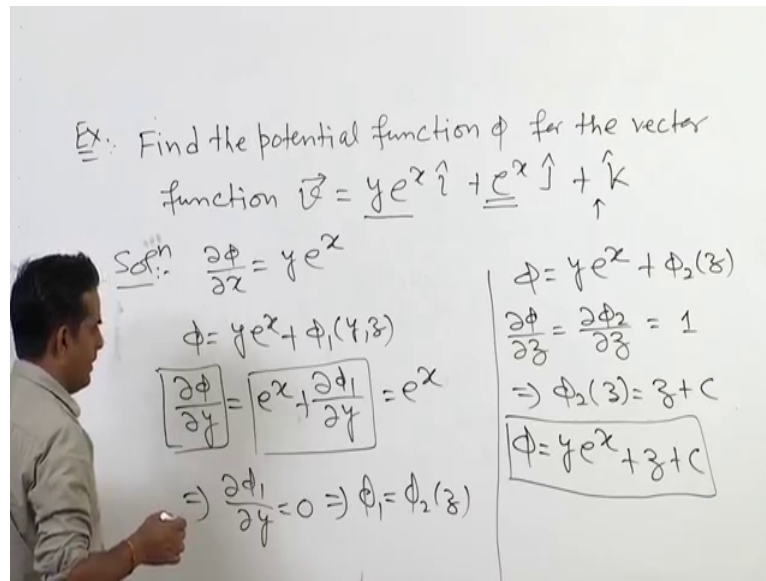 Ex.: Find the potential function ϕ for the vector
function v⃗ = ye^x î + e^x ĵ + k̂
↑
Solⁿ:. ∂ϕ/∂x = ye^x
ϕ = ye^x + ϕ₁(y,z)
∂ϕ/∂y = e^x + ∂ϕ₁/∂y = e^x
⇒ ∂ϕ₁/∂y = 0 ⇒ ϕ₁ = ϕ₂(z)
ϕ = ye^x + ϕ₂(z)
∂ϕ/∂z = ∂ϕ₂/∂z = 1
⇒ ϕ₂(z) = z + c
ϕ = ye^x + z + c